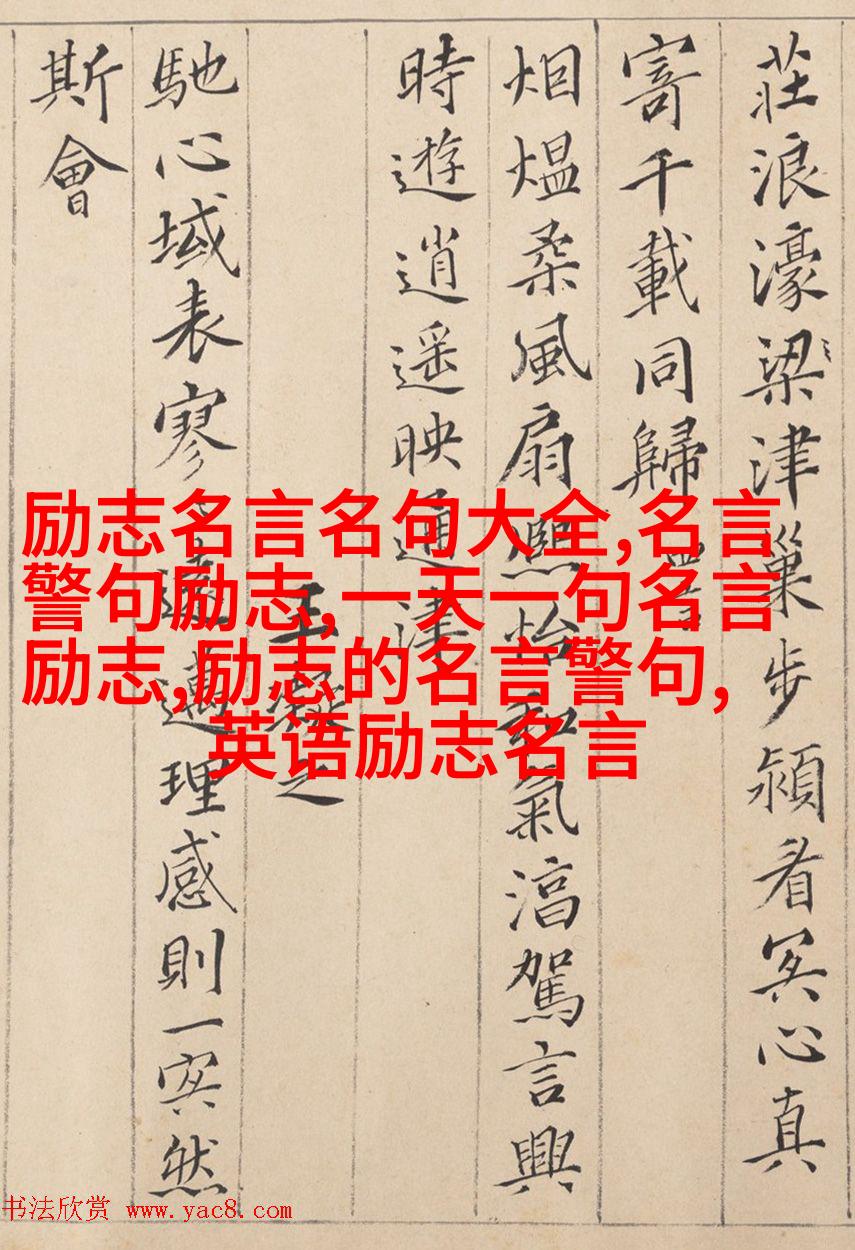 莊浪濠梁津巢步潁看冥心真
寄千載同歸
烟煴柔風扇熙怡和氣淯駕言興
時遊逍遥映通津
王凝之
馳心域表寥遠邁理感則一冥然
斯會
励志名言名句大全,名言
警句励志,一天一句名言
励志,励志的名言警句,
英语励志名言
书法欣赏 www.yac8.com